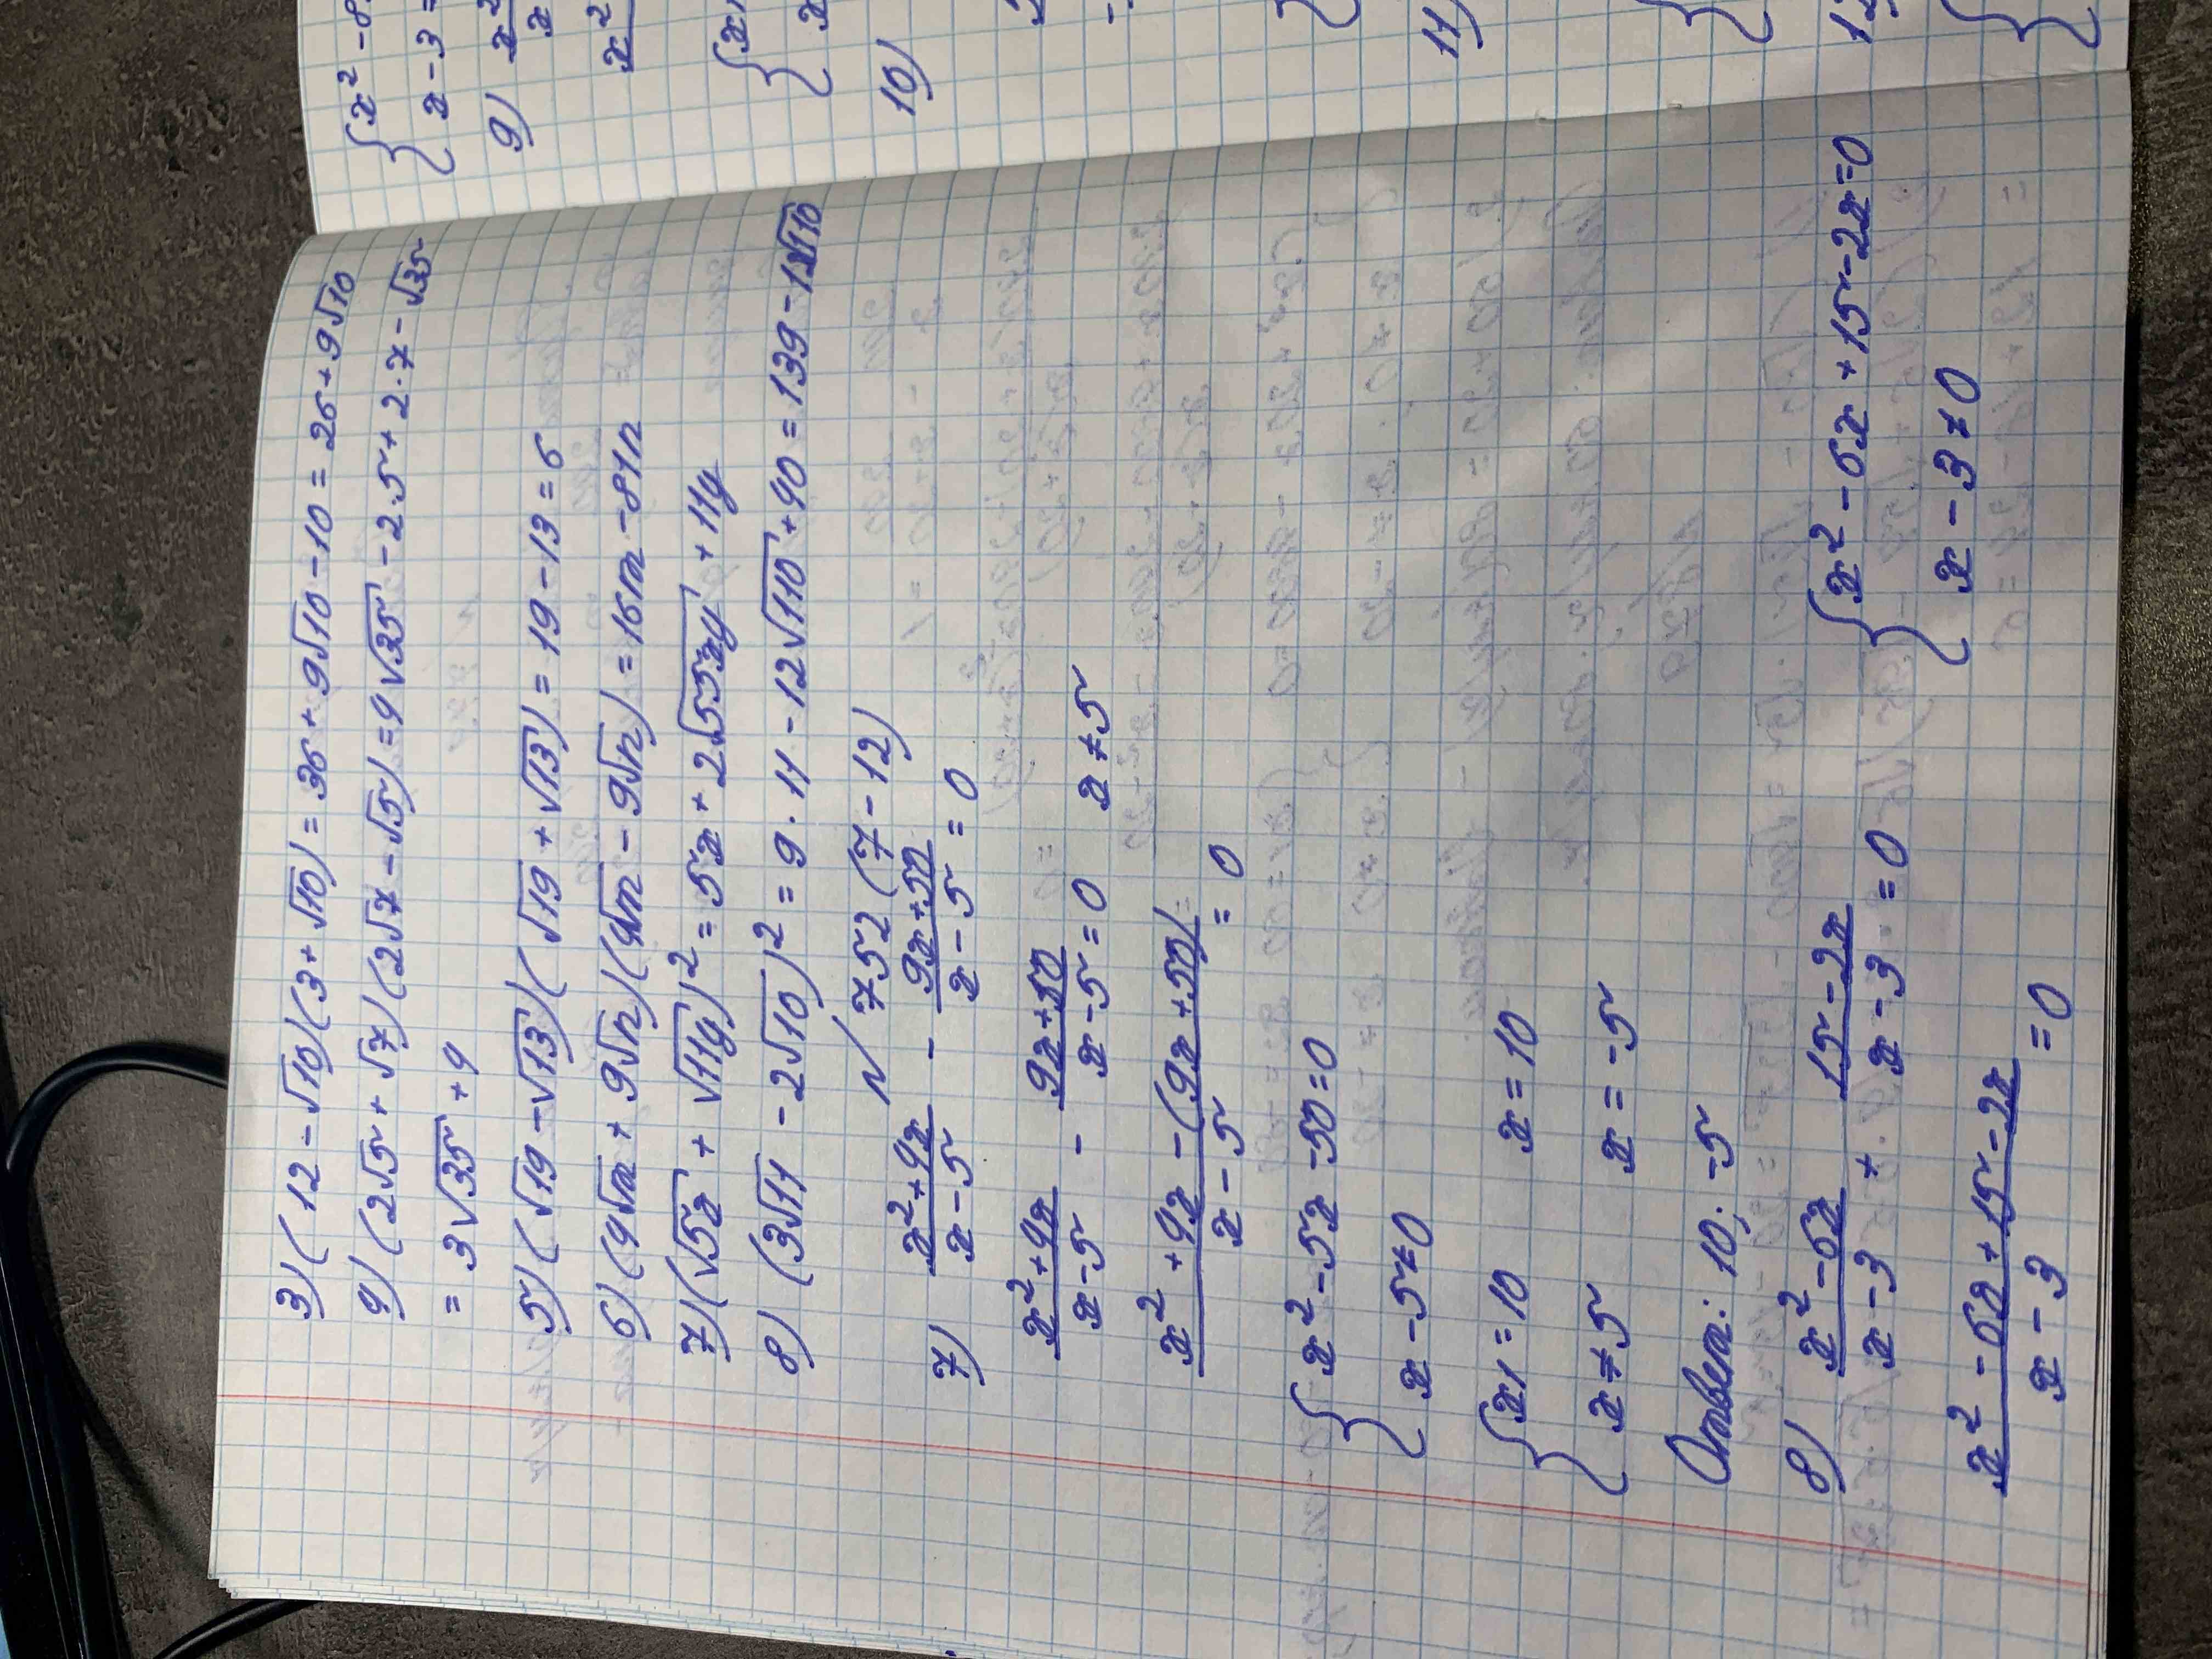 3) (12 - √10)(3 + √10) = 36 + 9√10 - 10 = 26 + 9√10
4) (2√5 + √7)(2√7 - √5) = 4√35 - 2·5 + 2·7 - √35
= 3√35 + 4
5) (√19 - √13)(√19 + √13) = 19 - 13 = 6
6) (4√m + 9√n)(4√m - 9√n) = 16m - 81n
7) (√5x + √11y)² = 5x + 2√55xy + 11y
8) (3√11 - 2√10)² = 9·11 - 12√110 + 40 = 139 - 12√110
N 752 (7-12)
7) (x² + 4x)/(x - 5) - (9x + 50)/(x - 5) = 0
(x² + 4x)/(x - 5) - (9x + 50)/(x - 5) = 0 x ≠ 5
(x² + 4x - (9x + 50))/(x - 5) = 0
{ x² - 5x - 50 = 0
x - 5 ≠ 0
{ x1 = 10 x = 10
x ≠ 5 x = -5
Ответ: 10; -5
8) (x² - 6x)/(x - 3) + (15 - 2x)/(x - 3) = 0 { x² - 6x + 15 - 2x = 0
(x² - 6x + 15 - 2x)/(x - 3) = 0 x - 3 ≠ 0
{ x² - 8
x - 3 =
9) x²
x
x²
{ x1
x
10)
11)
12)